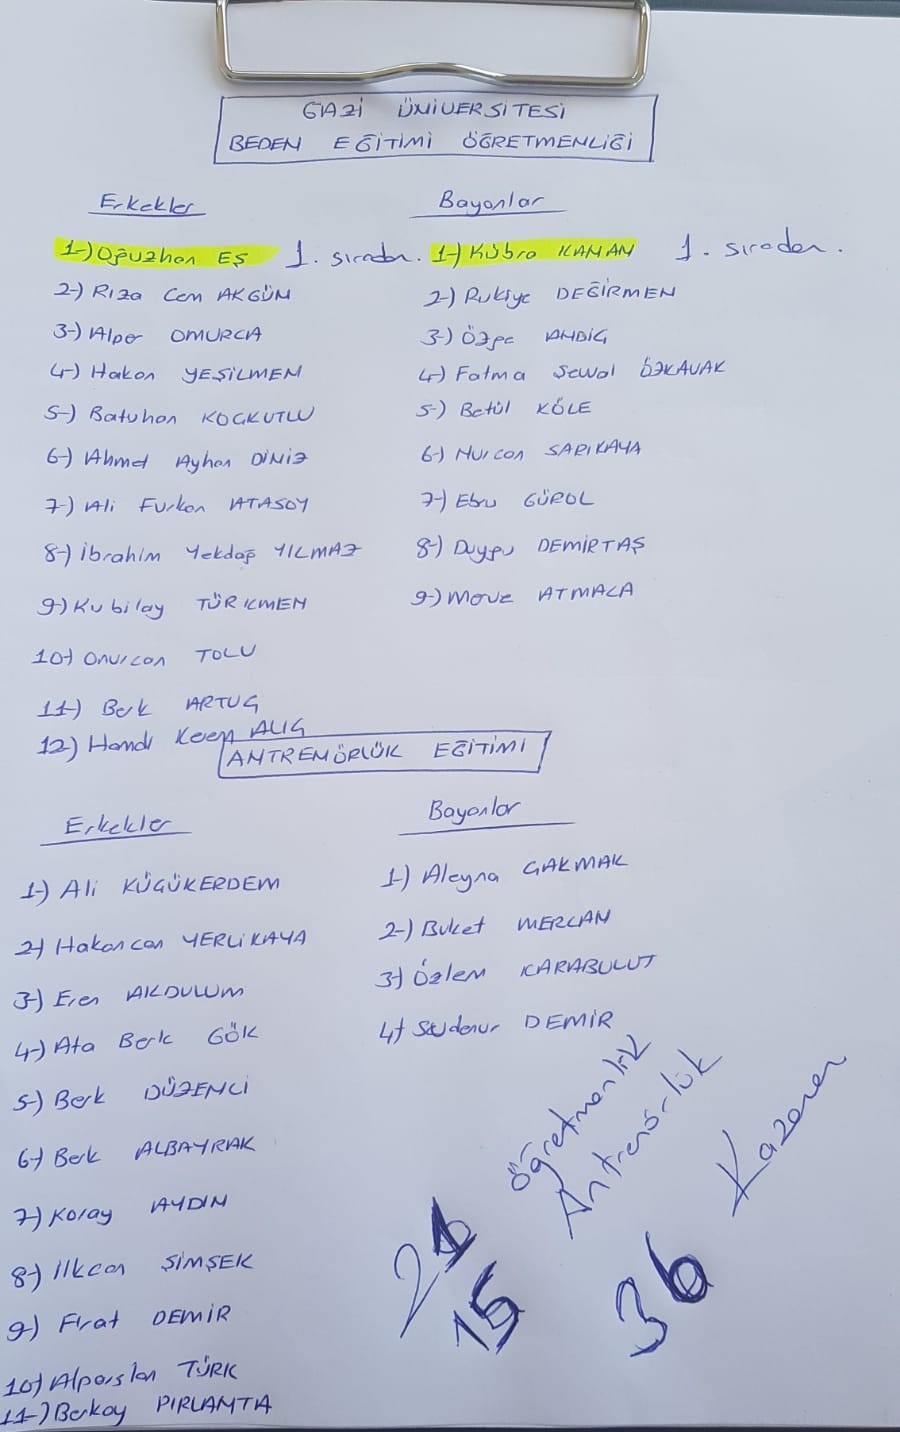 GAZİ ÜNİVERSİTESİ
BEDEN EĞİTİMİ ÖĞRETMENLİĞİ
Erkekler
1-) Oğuzhan EŞ 1. sıradan.
2-) Rıza Cem AKGÜN
3-) Alper OMURCA
4-) Hakan YEŞİLMEN
5-) Batuhan KOÇKUTLU
6-) Ahmet Ayhan DİNİZ
7-) Ali Furkan ATASOY
8-) İbrahim Yekdağ YILMAZ
9-) Kubilay TÜRKMEN
10-) Onurcan TOLU
11-) Berk ARTUÇ
12-) Hamdi Kerem ALIÇ
Bayanlar
1-) Kübra KAMAN 1. sıradan.
2-) Rukiye DEĞİRMEN
3-) Özge ANDİÇ
4-) Fatma Şewal ÖZKAVAK
5-) Betül KÖLE
6-) Nurcan SARIKAYA
7-) Ebru GÜROL
8-) Duygu DEMİRTAŞ
9-) Merve ATMACA
ANTREMÖRLÜK EĞİTİMİ
Erkekler
1-) Ali KÜÇÜKERDEM
2-) Hakancan YERLİKAYA
3-) Eren AKDULUM
4-) Ata Berk GÖK
5-) Berk DÜZENCİ
6-) Berk ALBAYRAK
7-) Koray AYDIN
8-) İlkcan ŞİMŞEK
9-) Fırat DEMİR
10-) Alparslan TÜRK
11-) Berkay PIRLANTA
Bayanlar
1-) Aleyna ÇAKMAK
2-) Buket MERCAN
3-) Özlem KARABULUT
4-) Sudenur DEMİR
21 Öğretmenlik
15 Antrenörlük
36 Kazanan